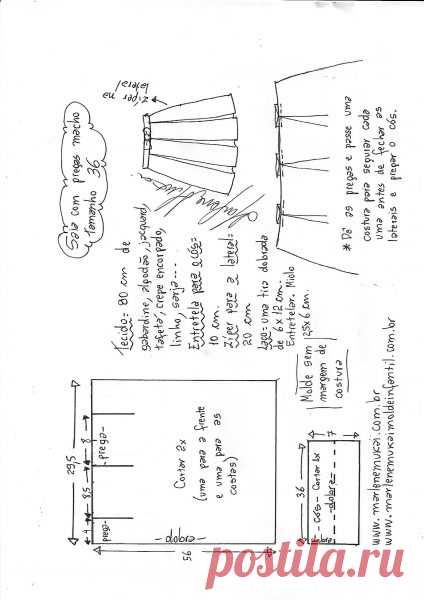 Saia com pregas macho
Tamanho 36
zíper na
lateral
Tecido = 80 cm de
gabardine, algodão, jacquard,
tafetá, crepe encorpado,
linho, sarja...
Entretela para o cós =
10 cm.
Zíper para a lateral =
20 cm
Laço = uma tira dobrada
de 6 x 12 cm. Miolo
Entretelar.
1,25x6 cm.
* Dê as pregas e passe uma
costura para segurar cada
uma antes de fechar as
laterais e pregar o cós.
Molde sem
margem de
costura
29,5
4
8,5
8
prega
prega
Cortar 2x
(uma para a frente
e uma para as
costas)
- dobra -
56
36
7
- Cós - Cortar 1x
dobra
www.marlenemukai.com.br
www.marlenemukaimoldeinfantil.com.br
postila.ru